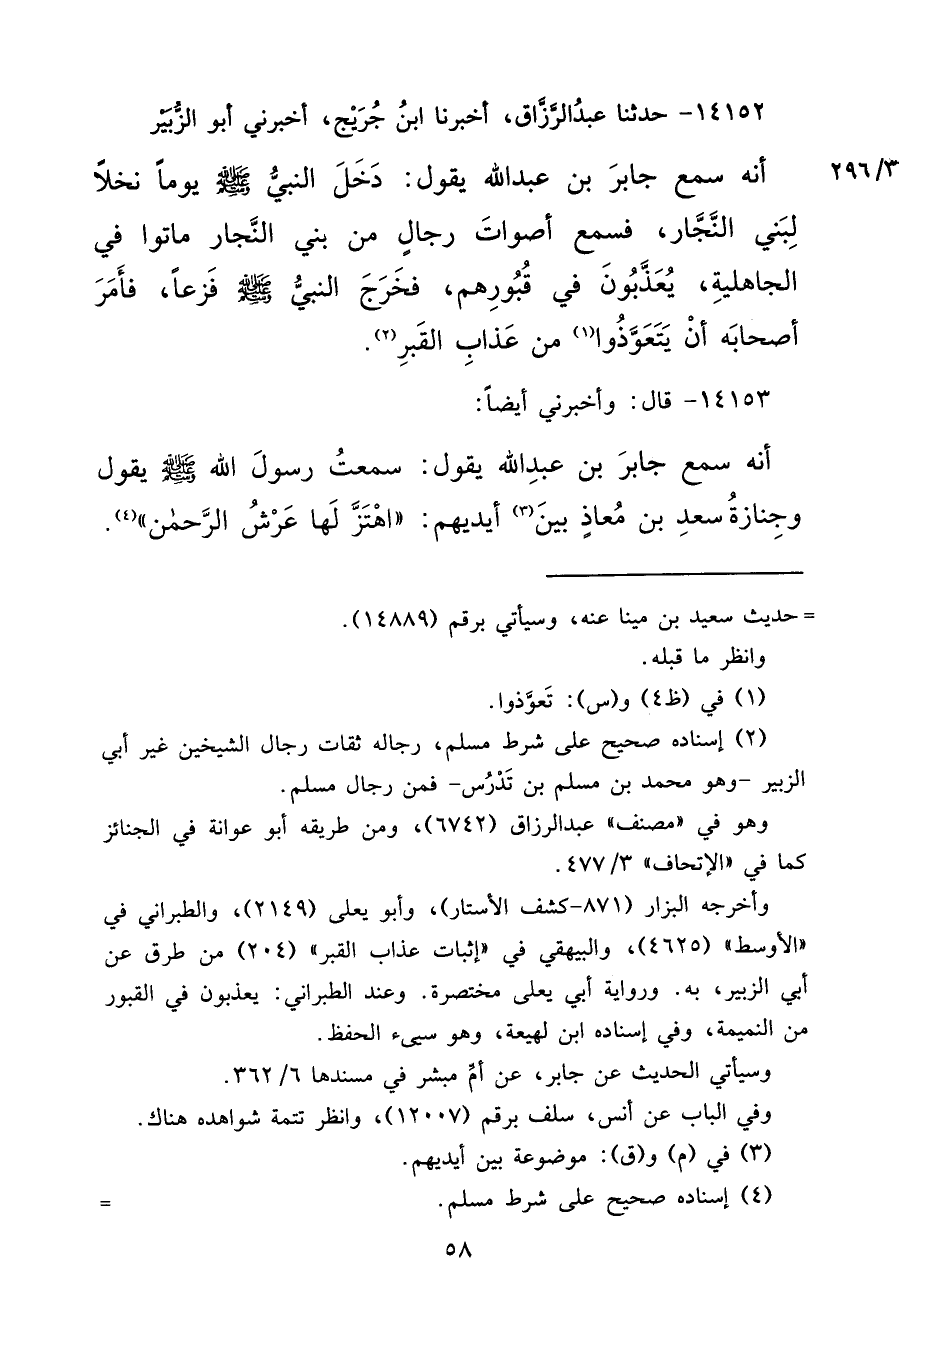 ١٤١٥٢- حدثنا عبدُالرَّزَّاق، أخبرنا ابنُ جُرَيْج، أخبرني أبو الزُّبَيْر
٢٩٦/٣
أنه سمع جابرَ بن عبدالله يقول: دَخَلَ النبيُّ ﷺ يوماً نخلاً
لِبَني النَّجَّار، فسمع أصواتَ رجالٍ من بني النَّجار ماتوا في
الجاهليةِ، يُعَذَّبُونَ في قُبُورِهم، فخَرَجَ النبيُّ ﷺ فَزعاً، فأَمَرَ
أصحابَه أنْ يَتَعَوَّذُوا(١) من عَذابِ القَبرِ(٢).
١٤١٥٣- قال: وأخبرني أيضاً:
أنه سمع جابرَ بن عبدِالله يقول: سمعتُ رسولَ الله ﷺ يقول
وجِنازةُ سعدِ بن مُعاذٍ بينَ(٣) أيديهم: «اهْتَزَّ لَها عَرْشُ الرَّحمٰن»(٤).
= حديث سعيد بن مينا عنه، وسيأتي برقم (١٤٨٨٩).
وانظر ما قبله.
(١) في (ظ٤) و(س): تَعوَّذوا.
(٢) إسناده صحيح على شرط مسلم، رجاله ثقات رجال الشيخين غير أبي
الزبير -وهو محمد بن مسلم بن تَدْرُس- فمن رجال مسلم.
وهو في «مصنف» عبدالرزاق (٦٧٤٢)، ومن طريقه أبو عوانة في الجنائز
كما في «الإتحاف» ٤٧٧/٣.
وأخرجه البزار (٨٧١-كشف الأستار)، وأبو يعلى (٢١٤٩)، والطبراني في
«الأوسط» (٤٦٢٥)، والبيهقي في «إثبات عذاب القبر» (٢٠٤) من طرق عن
أبي الزبير، به. ورواية أبي يعلى مختصرة. وعند الطبراني: يعذبون في القبور
من النميمة، وفي إسناده ابن لهيعة، وهو سيىء الحفظ.
وسيأتي الحديث عن جابر، عن أمِّ مبشر في مسندها ٣٦٢/٦.
وفي الباب عن أنس، سلف برقم (١٢٠٠٧)، وانظر تتمة شواهده هناك.
(٣) في (م) و(ق): موضوعة بين أيديهم.
(٤) إسناده صحيح على شرط مسلم. =
٥٨